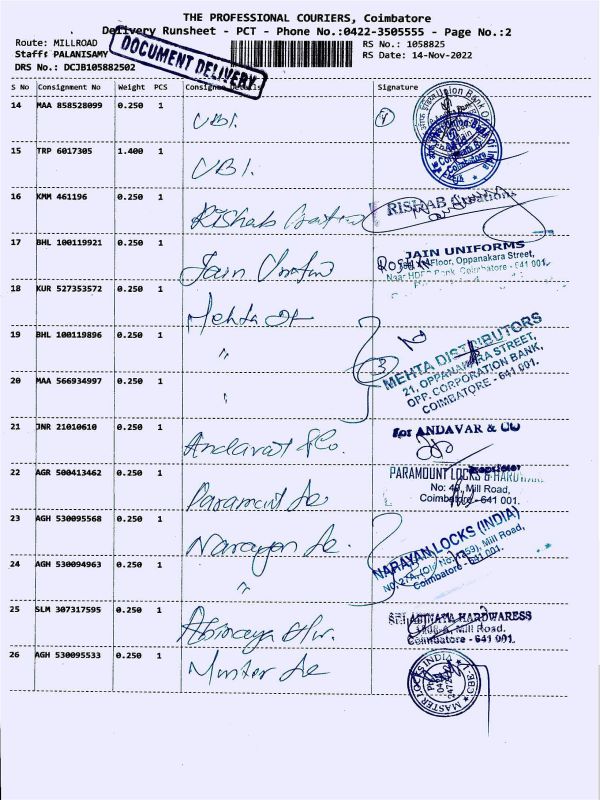 THE PROFESSIONAL COURIERS, Coimbatore
Delivery Runsheet - PCT - Phone No.:0422-3505555 - Page No.:2
Route: MILLROAD
RS No.: 1058825
Staff: PALANISAMY
RS Date: 14-Nov-2022
DRS No.: DCJB105882502
DOCUMENT DELIVERY
S No Consignment No Weight PCS Consignee Details Signature
14 MAA 858528099 0.250 1 UBI.
Union Bank Of India
Coimbatore
15 TRP 6017305 1.400 1 UBI.
16 KMM 461196 0.250 1 Rishab Creation
RISHAB Creations
17 BHL 100119921 0.250 1 Jain Uniform
JAIN UNIFORMS
Floor, Oppanakara Street,
Near HDFC Bank, Coimbatore - 641 001.
18 KUR 527353572 0.250 1 Mehta Dt
19 BHL 100119896 0.250 1 "
3
MEHTA DISTRIBUTORS
21, OPPANAKARA STREET,
OPP. CORPORATION BANK,
COIMBATORE - 641 001.
20 MAA 566934997 0.250 1 "
21 JNR 21010610 0.250 1 Andavar & Co.
for ANDAVAR & CO
Proprietor
22 AGR 500413462 0.250 1 Paramount Lc
PARAMOUNT LOCKS & HARDWARE
Mill Road,
Coimbatore - 641 001.
23 AGH 530095568 0.250 1 Narayan Lc.
NARAYAN LOCKS (INDIA)
Mill Road,
Coimbatore - 641 001.
24 AGH 530094963 0.250 1 "
25 SLM 307317595 0.250 1 Abinaya Hw.
SRI ABINAYA HARDWARESS
Mill Road.
Coimbatore - 641 001.
26 AGH 530095533 0.250 1 Master Lc
MASTER LOCKS INDIA
CBE-1